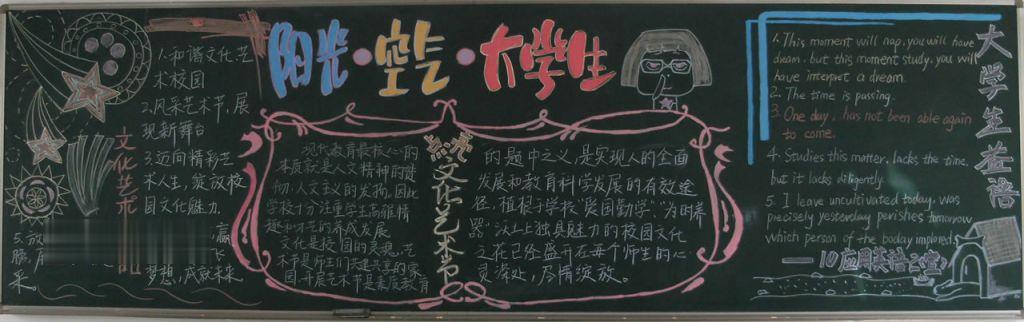 阳光·空气·大学生
1.和谐文化,艺
术校园
2.风采艺术节,展
现新舞台
3.迈向精彩艺
术人生,绽放校
园文化魅力.
5.放
赢
胜
梦想,成就未来
采。
文化艺术
现代教育最核心的
本质就是人文精神的贯
彻,人文主义的发扬。因此
学校十分注重学生高雅情
趣和才艺的养成发展。
文化是校园的灵魂,艺
术是师生们共建共享的家
园,开展艺术节是素质教育
点亮文化艺术节
的题中之义,是实现人的全面
发展和教育科学发展的有效途
径,植根于学校“爱国勤学”,“为时养
器”沃土上独具魅力的校园文化
之花已经盛开在每个师生的心
灵深处,尽情绽放。
1. This moment will nap, you will have
dream. but this moment study, you will
have interpret a dream.
2. The time is passing.
3. One day, has not been able again
to come.
4. Studies this matter, lacks the time,
but it lacks diligently.
5. I leave uncultivated today, was
precisely yesterday perishes tomorrow
which person of the boday implored.
——10应用英语2堂
大学生英语